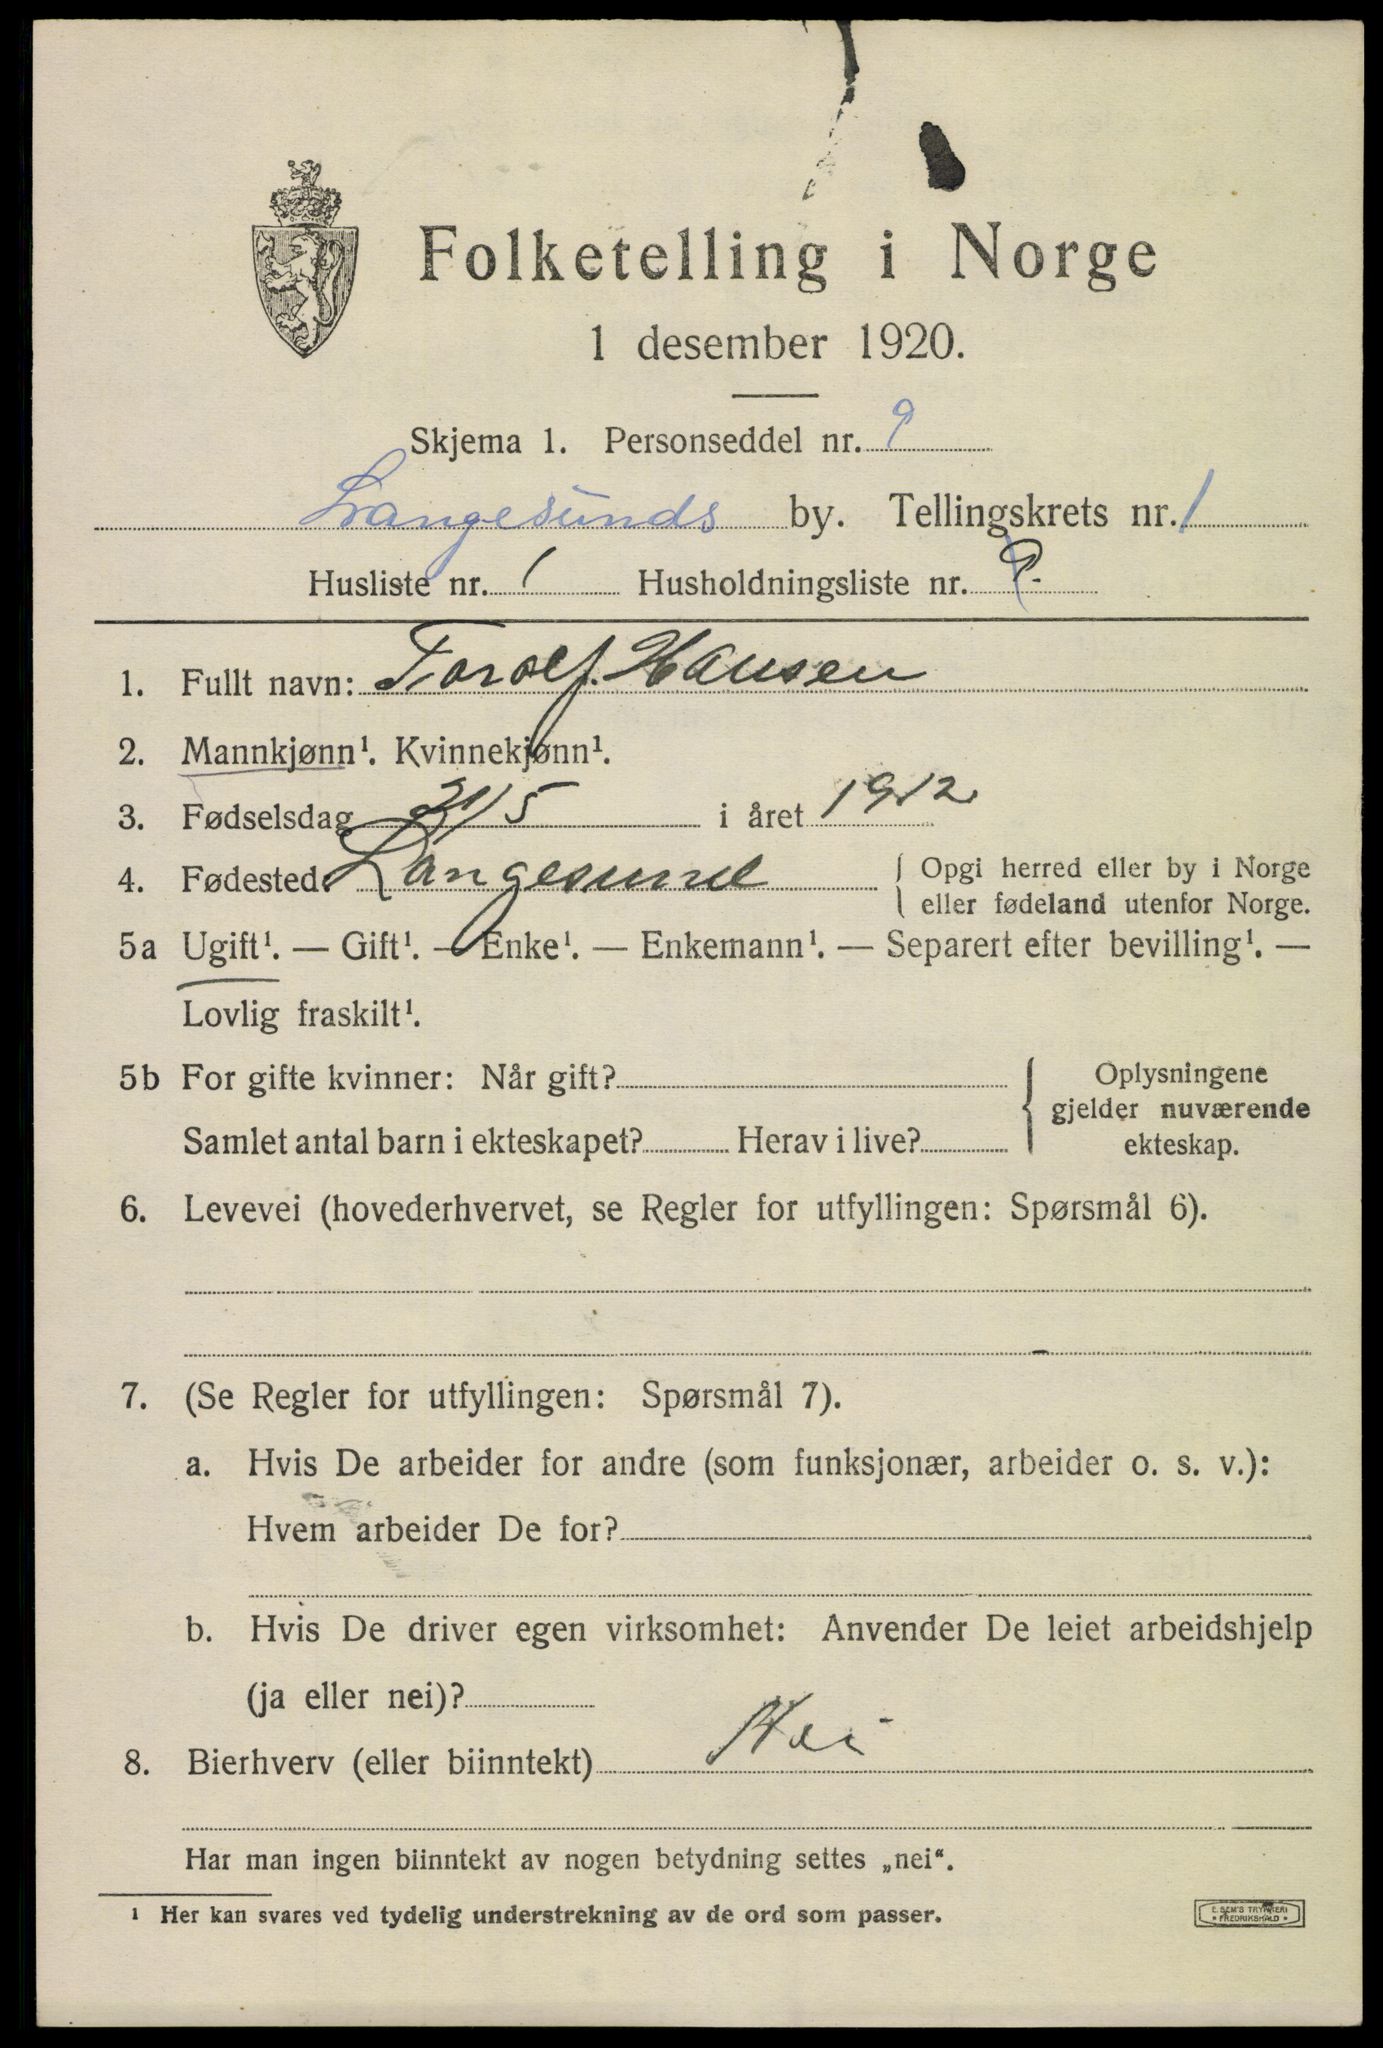 Folketelling i Norge
1 desember 1920.
Skjema 1. Personseddel nr. 9
Langesunds by. Tellingskrets nr. 1
Husliste nr. 1 Husholdningsliste nr.
1. Fullt navn: Torolf. Hansen
2. Mannkjønn¹. Kvinnekjønn¹.
3. Fødselsdag 31/5 i året 1912
4. Fødested: Langesund { Opgi herred eller by i Norge
eller fødeland utenfor Norge.
5a Ugift¹. — Gift¹. — Enke¹. — Enkemann¹. — Separert efter bevilling¹. —
Lovlig fraskilt¹.
5b For gifte kvinner: Når gift? { Oplysningene
gjelder nuværende
Samlet antal barn i ekteskapet? Herav i live? ekteskap.
6. Levevei (hovederhvervet, se Regler for utfyllingen: Spørsmål 6).
7. (Se Regler for utfyllingen: Spørsmål 7).
a. Hvis De arbeider for andre (som funksjonær, arbeider o. s. v.):
Hvem arbeider De for?
b. Hvis De driver egen virksomhet: Anvender De leiet arbeidshjelp
(ja eller nei)?
8. Bierhverv (eller biinntekt) Nei
Har man ingen biinntekt av nogen betydning settes „nei“.
¹ Her kan svares ved tydelig understrekning av de ord som passer.
E. SEM'S TRYKKERI
* FREDRIKSHALD *